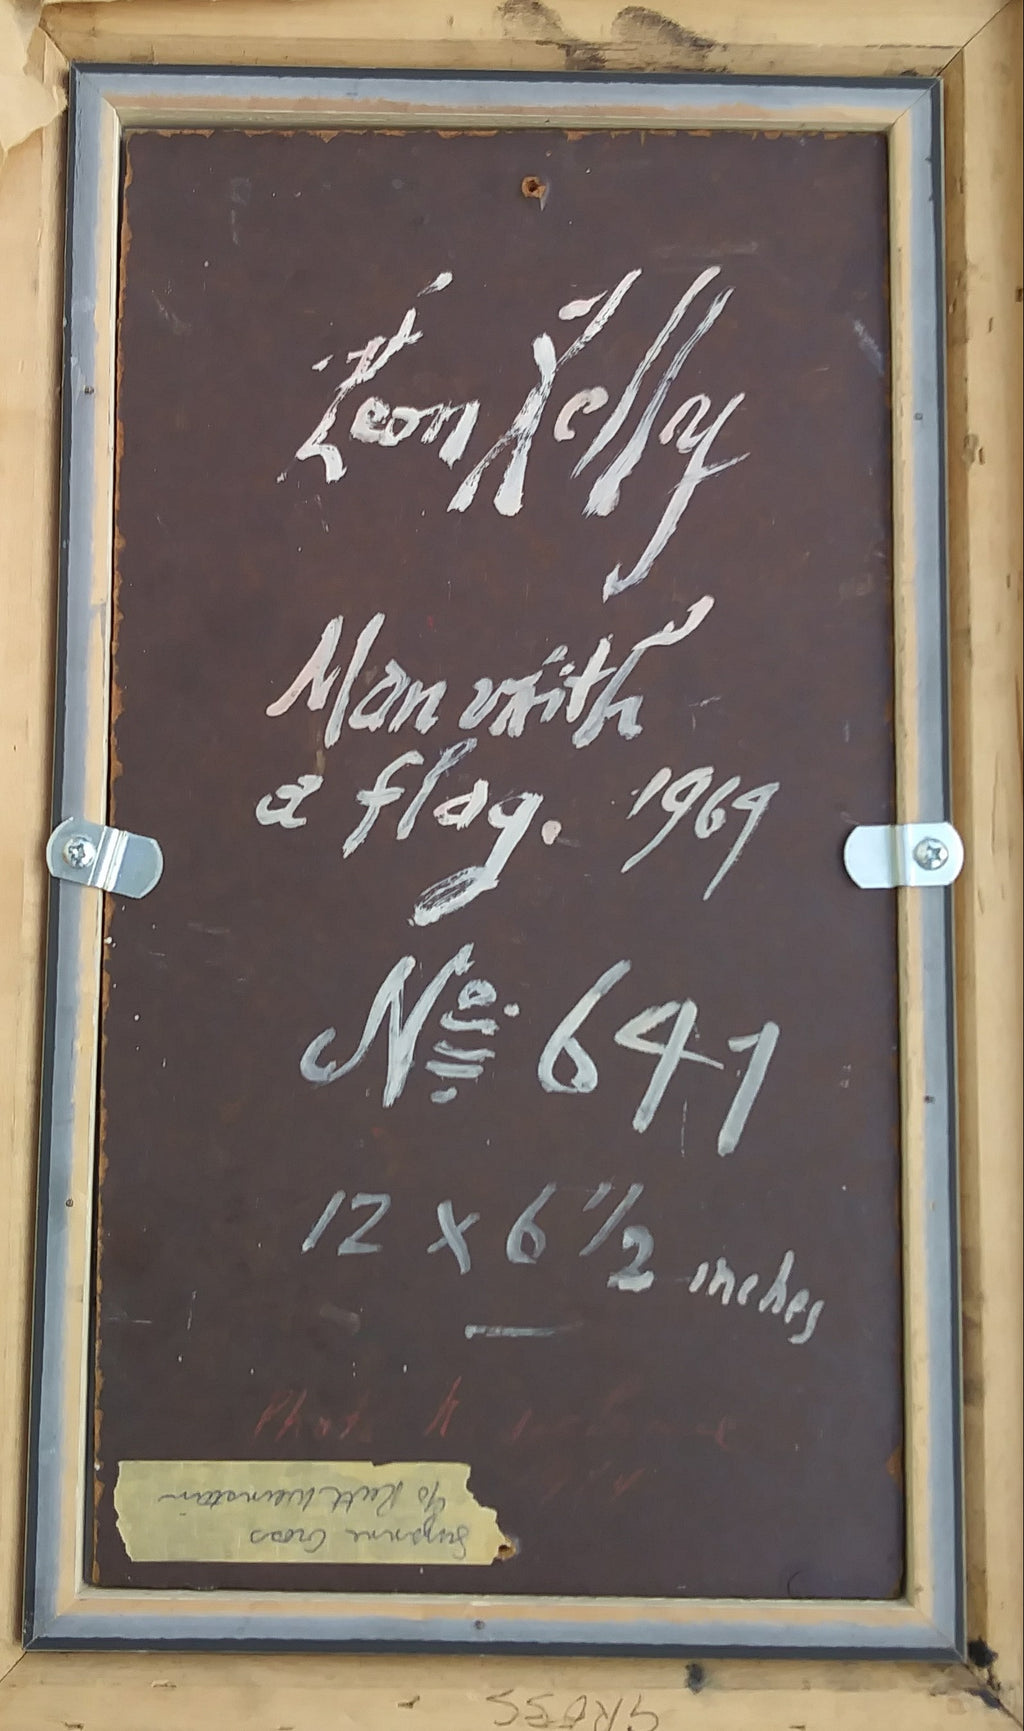 Leon Kelly
Man with
a flag. 1969
Nº 641
12 x 6 1/2 inches
Suzanne Gross
c/o Ruth Weinstein
GROSS